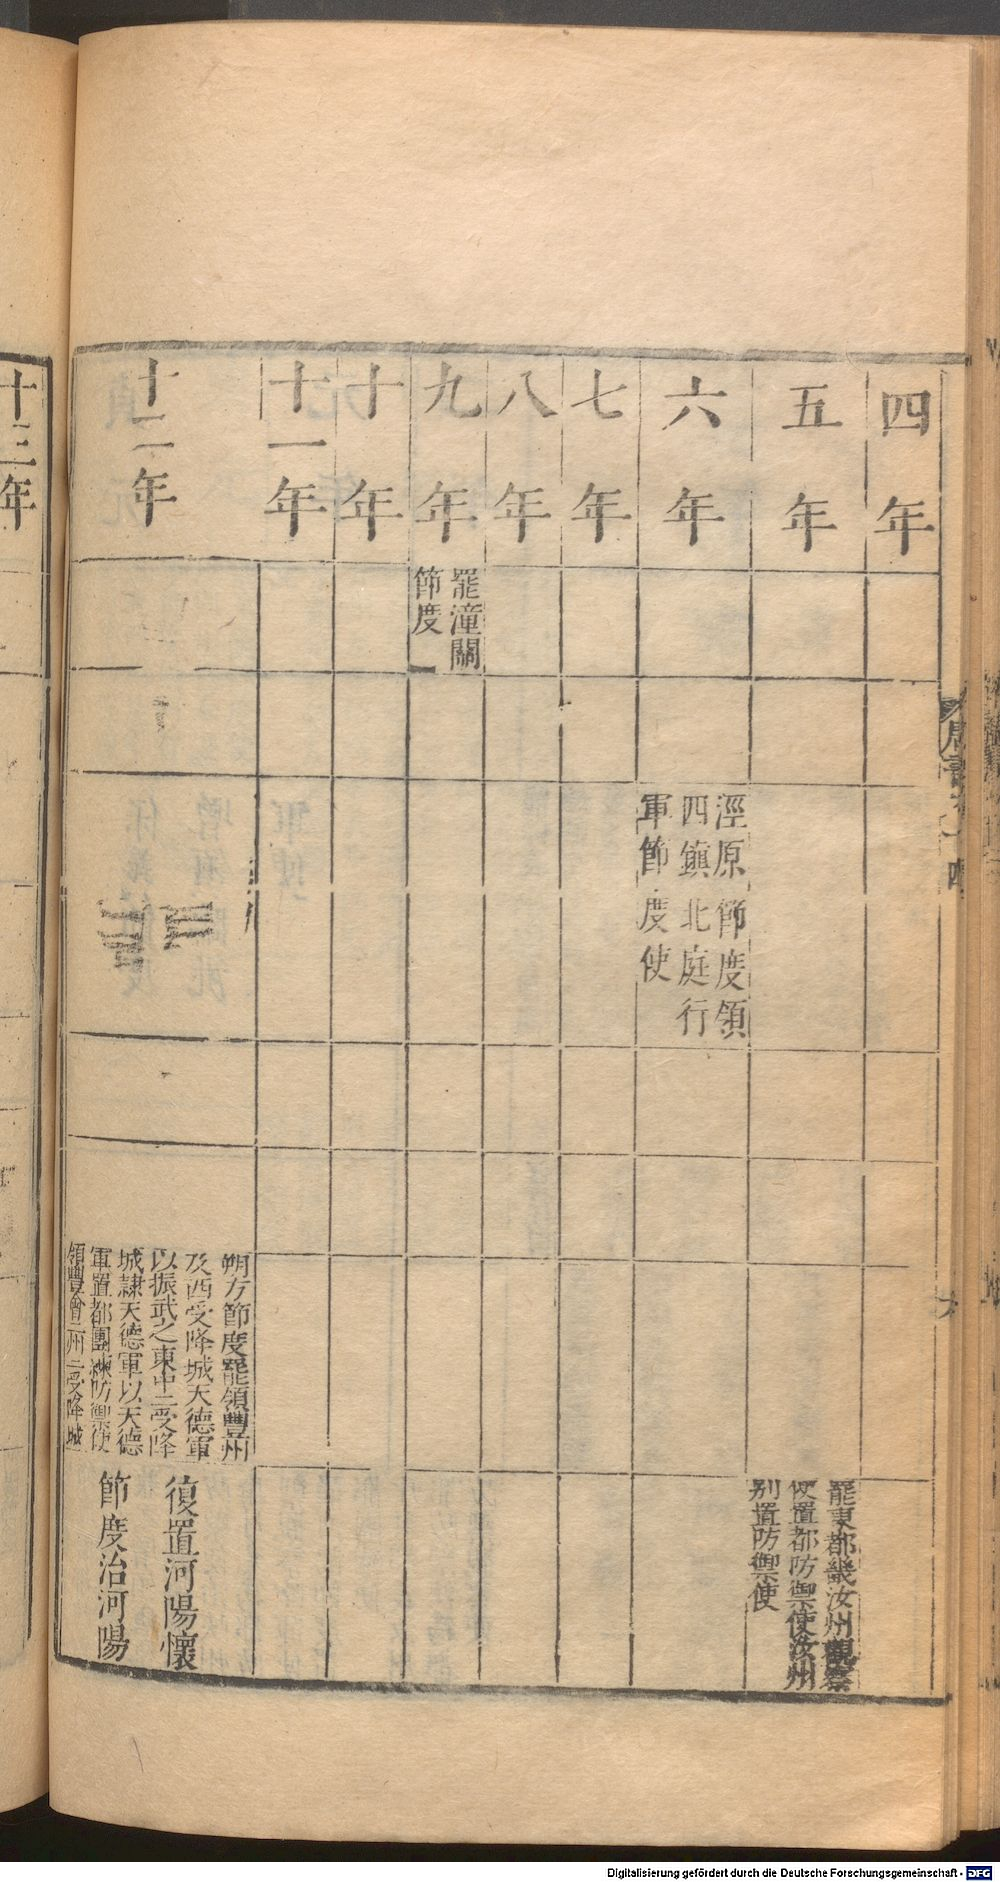 四年
五年
罷東都畿汝州觀察
使置都防禦使汝州
別置防禦使
六年
涇原節度領
四鎮北庭行
軍節度使
七年
八年
九年
罷潼關
節度
十年
十一年
十二年
朔方節度罷領豐州
及西受降城天德軍
以振武之東中二受降
城隸天德軍以天德
軍置都團練防禦使
領豐會二州三受降城
復置河陽懷
節度治河陽
十三年
六
Digitalisierung gefördert durch die Deutsche Forschungsgemeinschaft - DFG